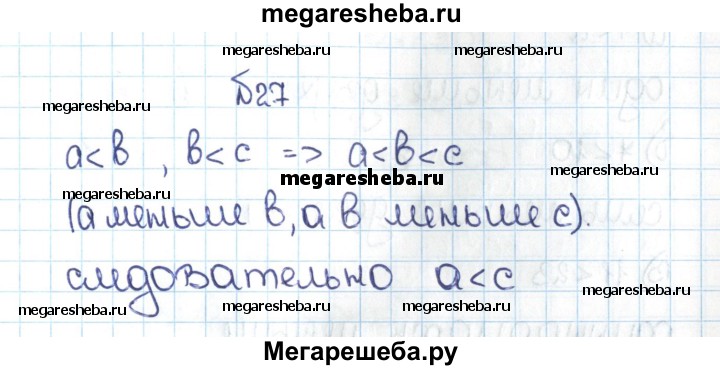 megaresheba.ru
megaresheba.ru megaresheba.ru
№27
megaresheba.ru megaresheba.ru
a<b, b<c => a<b<c
megaresheba.ru
megaresheba.ru megaresheba.ru
(а меньше b, а b меньше c).
следовательно a<c
megaresheba.ru megaresheba.ru megaresheba.ru megaresheba.ru
Мегарешеба.ру